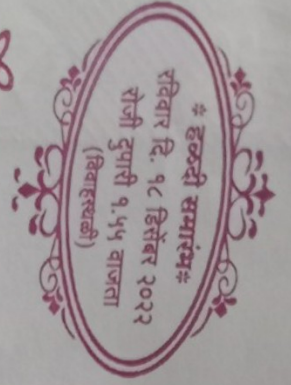 * हळदी समारंभ *
रविवार दि. १८ डिसेंबर २०२२
रोजी दुपारी १.५५ वाजता
(विवाहस्थळी)